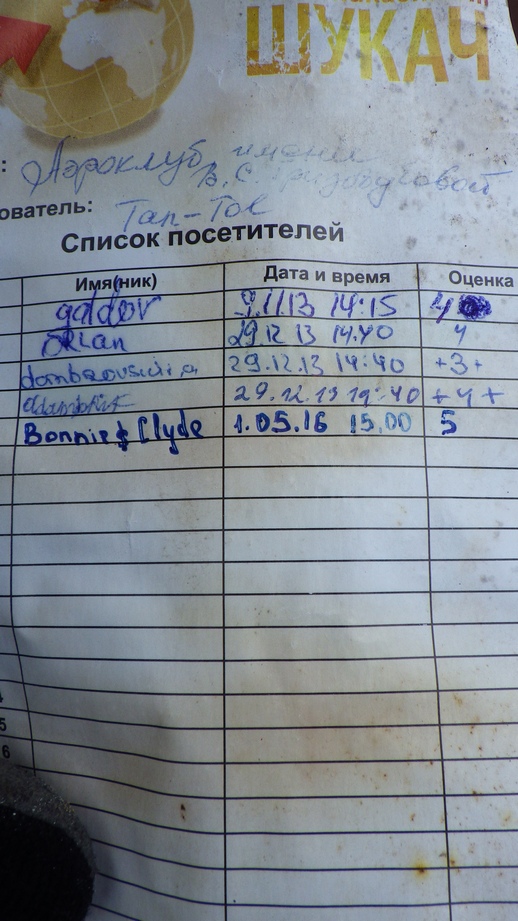 ШУКАЧ
: Аэроклуб имени
В.С. Гризодубовой
ователь: Тап-Tol
Список посетителей
Имя(ник) Дата и время Оценка
galdov 9.11.13 14:15 4
ORLan 29.12 13 14.40 4
29.12.13 14:40 +3+
29.12.13 14:40 +4+
Bonnie & Clyde 1.05.16 15.00 5
5
6